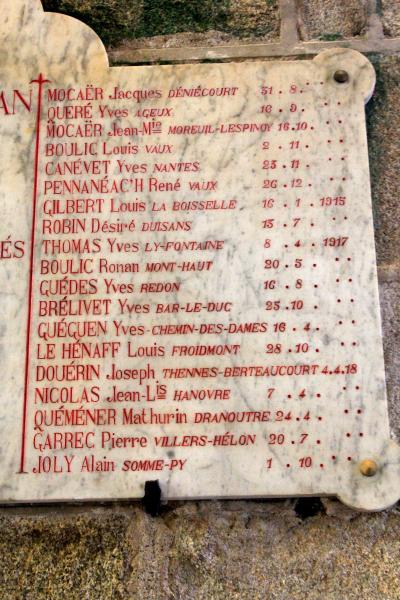 AN
MOCAËR Jacques DÉNIÉCOURT 31 . 8 . . .
QUERÉ Yves AGEUX 16 . 9 . . .
MOCAËR Jean-Mie MOREUIL-LESPINOY 16.10 . . .
BOULIC Louis VAUX 2 . 11 . . .
CANÉVET Yves NANTES 23 . 11 . . .
PENNANÉAC'H René VAUX 26 . 12 . . .
GILBERT Louis LA BOISSELLE 16 . 1 . 1915
ROBIN Désiré DUISANS 13 . 7 . . .
ÉS
THOMAS Yves LY-FONTAINE 8 . 4 . 1917
BOULIC Ronan MONT-HAUT 20 . 5 . . .
GUÉDES Yves REDON 16 . 8 . . .
BRÉLIVET Yves BAR-LE-DUC 23 . 10 . . .
GUÉGUEN Yves-CHEMIN-DES-DAMES 16 . 4 . . .
LE HÉNAFF Louis FROIDMONT 28 . 10 . . .
DOUÉRIN Joseph THENNES-BERTEAUCOURT 4.4.18
NICOLAS Jean-Lis HANOVRE 7 . 4 . . .
QUÉMÉNER Mathurin DRANOUTRE 24 . 4 . . .
GARREC Pierre VILLERS-HÉLON 20 . 7 . . .
JOLY Alain SOMME-PY 1 . 10 . . .